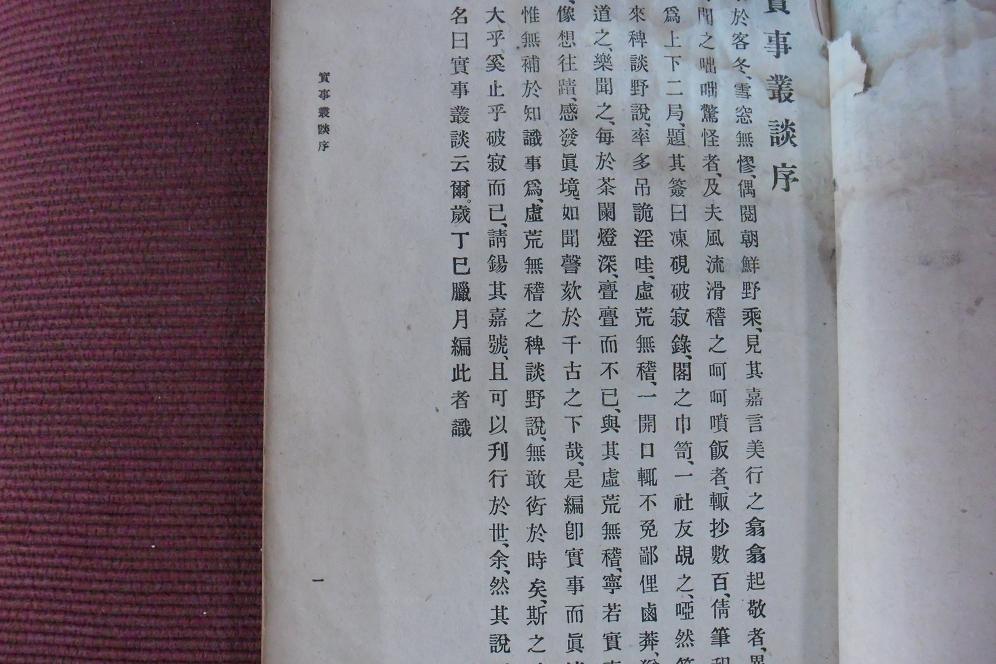 實事叢談序
於客冬、雪窓無憀、偶閱朝鮮野乘、見其嘉言美行之翕翕起敬者、
聞之咄咄驚怪者、及夫風流滑稽之呵呵噴飯者、輙抄數百、倩筆
爲上下二局、題其簽曰凍硯破寂錄、閣之巾笥、一社友覘之、啞然
來稗談野說、率多吊詭淫哇、虛荒無稽、一開口輒不免鄙俚鹵莽、
道之、樂聞之、每於茶闌燈深、亹亹而不已、與其虛荒無稽、寧若實
像想往蹟、感發眞境、如聞謦欬於千古之下哉、是編卽實事而眞
惟無補於知識事爲、虛荒無稽之稗談野說、無敢衒於時矣、斯之
大乎奚止乎破寂而已、請錫其嘉號、且可以刊行於世、余、然其說
名曰實事叢談云爾。歲丁巳臘月編此者識
實事叢談序
一